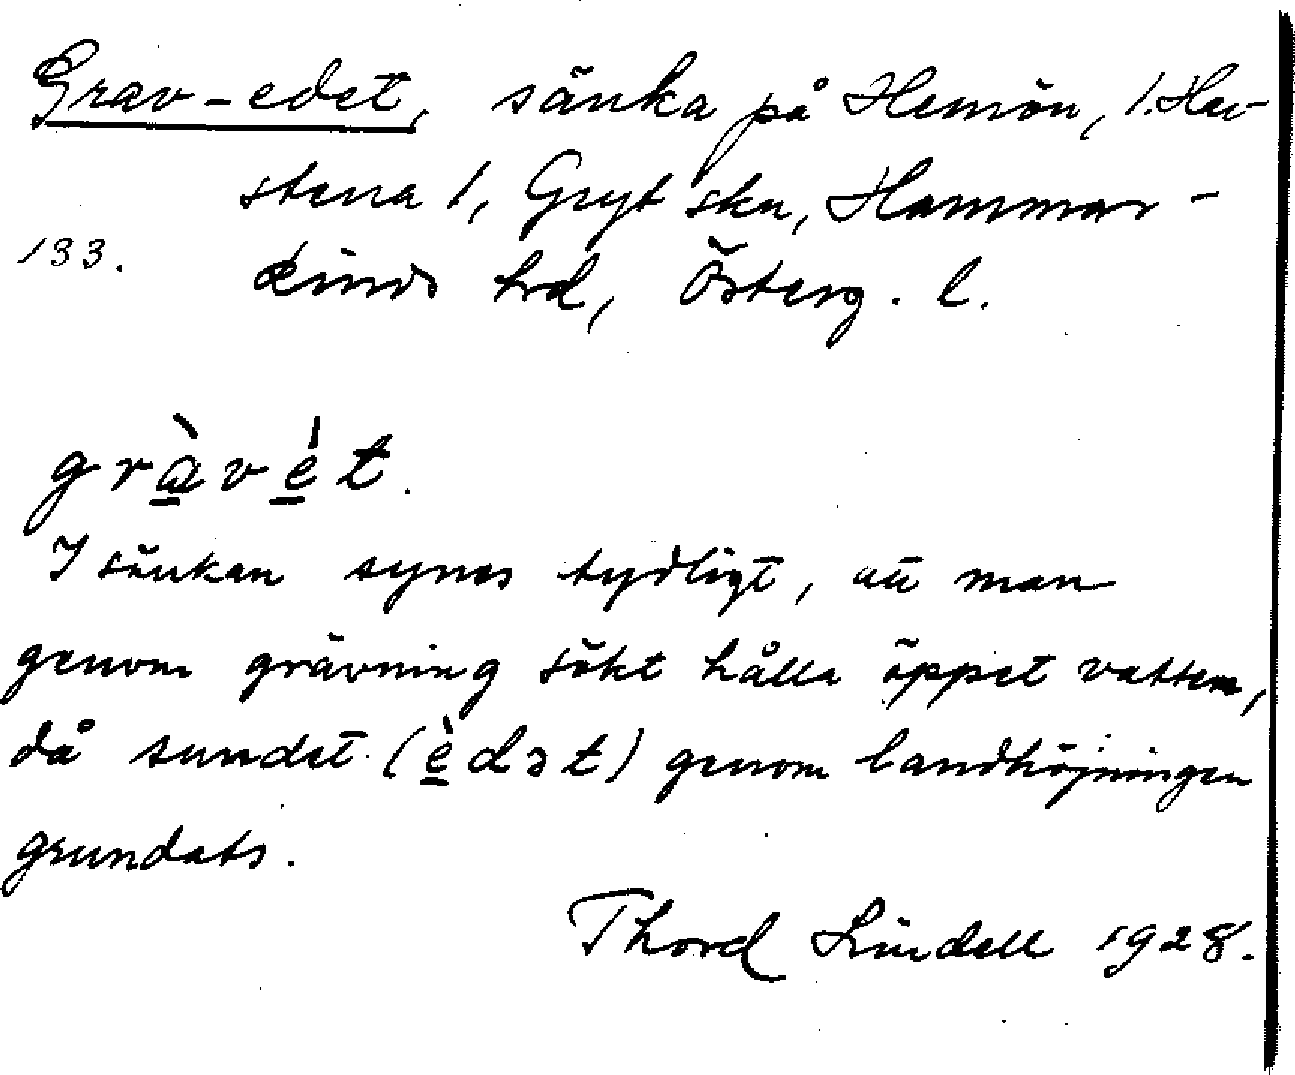 Grav-edet, sänka på Hemön, 1. Hav-
stena 1, Gryt skn, Hammar-
133. kinds hrd, Österg. l.
gràvét.
I sänkan synes tydligt, att man
genom grävning sökt hålla öppet vatten,
då sundet (èdət) genom landhöjningen
grundats.
Thord Lindell 1928.